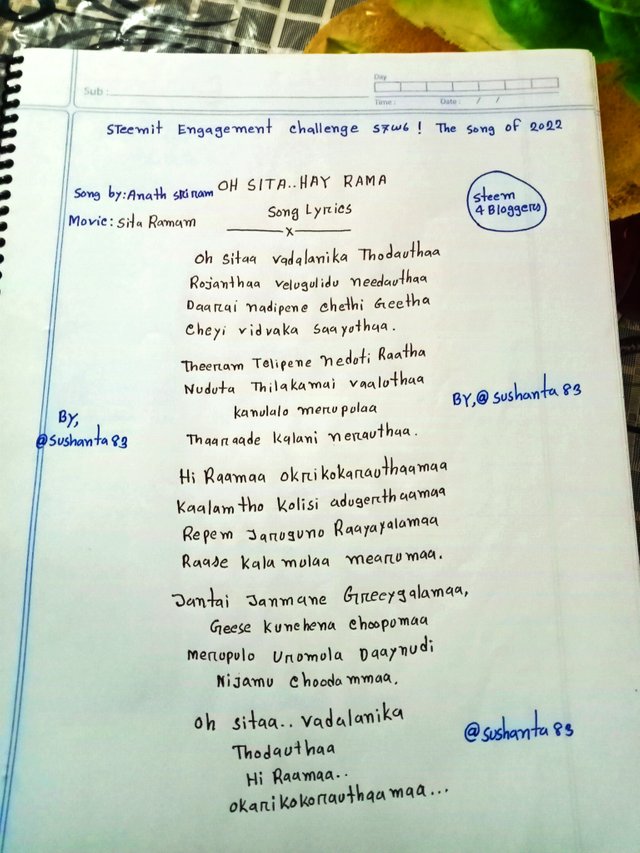 Day
Sub :
Time :
Date : / /
Steemit Engagement challenge S7W6 ! The song of 2022
Song by: Anath skiram
OH SITA..HAY RAMA
Movie: Sita Ramam
Song Lyrics
x
Steem
4 Bloggers
Oh sitaa vadalanika Thodauthaa
Rojanthaa velugulidu needauthaa
Daarai nadipene chethi Geetha
Cheyi vidvaka saayothaa.
Theeram Telipene nedoti Raatha
Nuduta Thilakamai vaaluthaa
kanulalo merupulaa
Thaaraade kalani nerauthaa.
BY,
@sushanta83
BY,@sushanta83
Hi Raamaa okrikokarauthaamaa
Kaalamtho kolisi adugerthaamaa
Repem Jaruguno Raayayalamaa
Raase kala mulaa mearumaa.
Jantai Janmane Greeygalamaa,
Geese Kunchena choopumaa
merupulo Uromula Daaynudi
Nijamu choodammaa.
Oh sitaa.. vadalanika
Thodauthaa
Hi Raamaa..
okarikokorauthaamaa...
@sushanta83